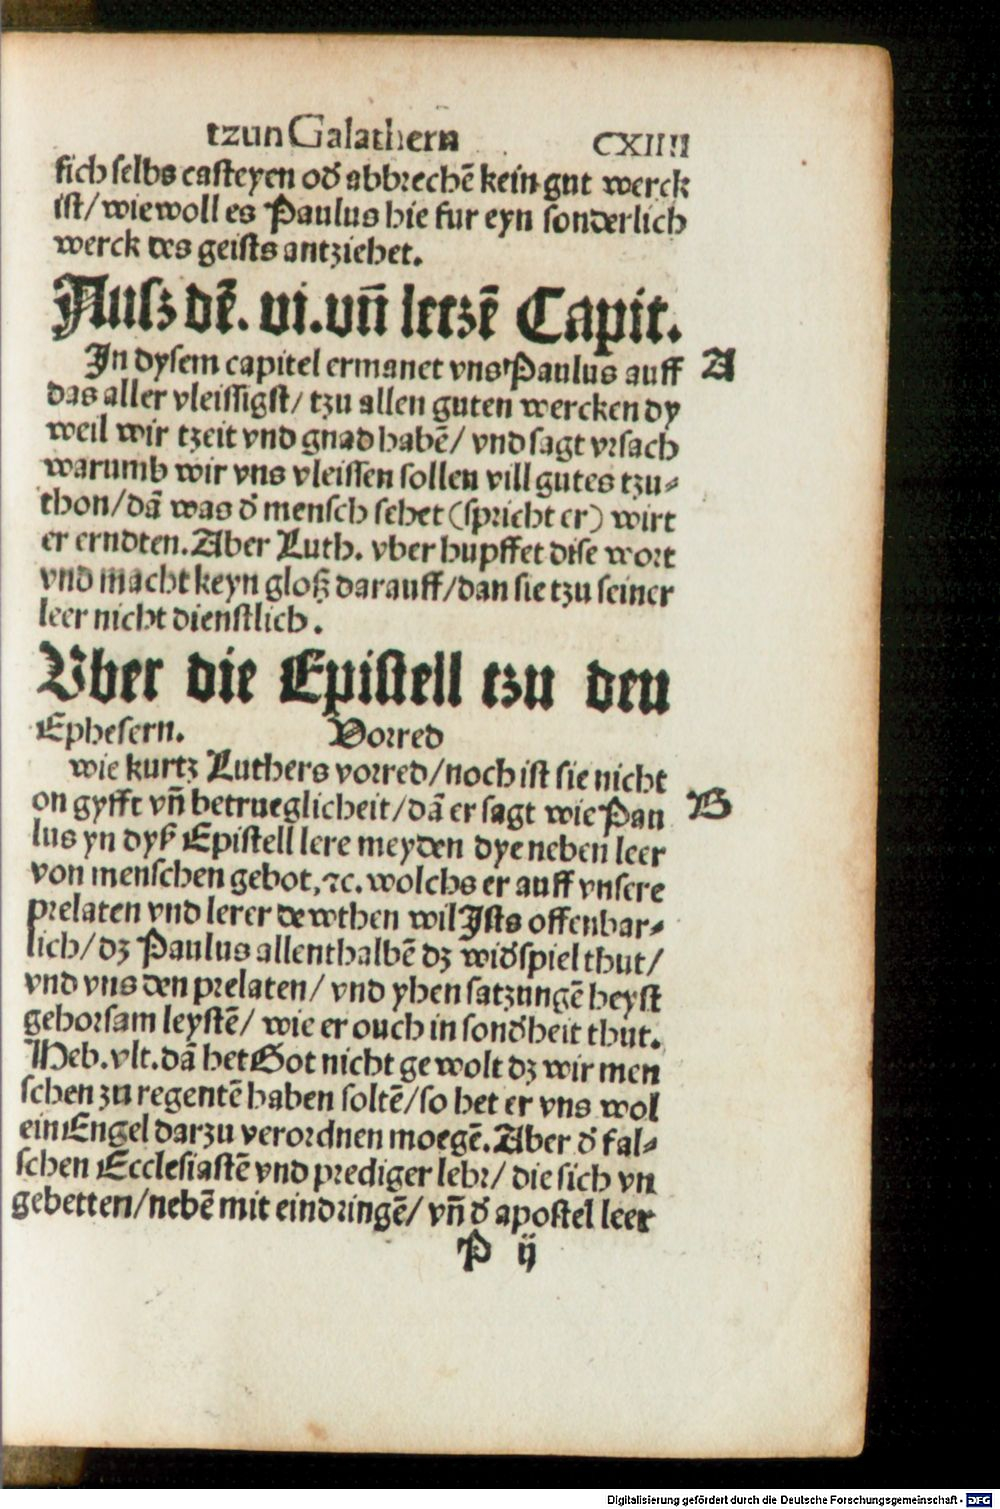 tzun Galathern CXIIII
sich selbs casteyen od̕ abbrechē kein gut werck
ist/ wiewoll es Paulus hie fur eyn sonderlich
werck des geists antziehet.
Ausz dē. vi. vn̄ letzē Capit.
In dysem capitel ermanet vns Paulus auff A
das aller vleissigst/ tzu allen guten wercken dy
weil wir tzeit vnd gnad habē/ vnd sagt vrsach
warumb wir vns vleissen sollen vill gutes tzu⸗
thon/ dā was d̕ mensch sehet (spricht er) wirt
er erndten. Aber Luth. vber hupffet dise wort
vnd macht keyn gloß darauff/ dan sie tzu seiner
leer nicht dienstlich.
Vber die Epistell tzu den
Ephesern. Vorred
wie kurtz Luthers vorred/ noch ist sie nicht
on gyfft vn̄ betrueglicheit/ dā er sagt wie Pau B
lus yn dyß Epistell lere meyden dye neben leer
von menschen gebot, ⁊c. wolchs er auff vnsere
prelaten vnd lerer dewthen wil Ists offenbar⸗
lich/ dz Paulus allenthalbē dz wid̕spiel thut/
vnd vns den prelaten/ vnd yhen satzungē heyst
gehorsam leystē/ wie er ouch in sond̕heit thut.
Heb. vlt. dā het Got nicht gewolt dz wir men
schen zu regentē haben soltē/ so het er vns wol
ein Engel darzu verordnen moegē. Aber d̕ fal⸗
schen Ecclesiastē vnd prediger lehr/ die sich vn
gebetten/ nebē mit eindringē/ vn̄ d̕ apostel leer
P ij
Digitalisierung gefördert durch die Deutsche Forschungsgemeinschaft - DFG